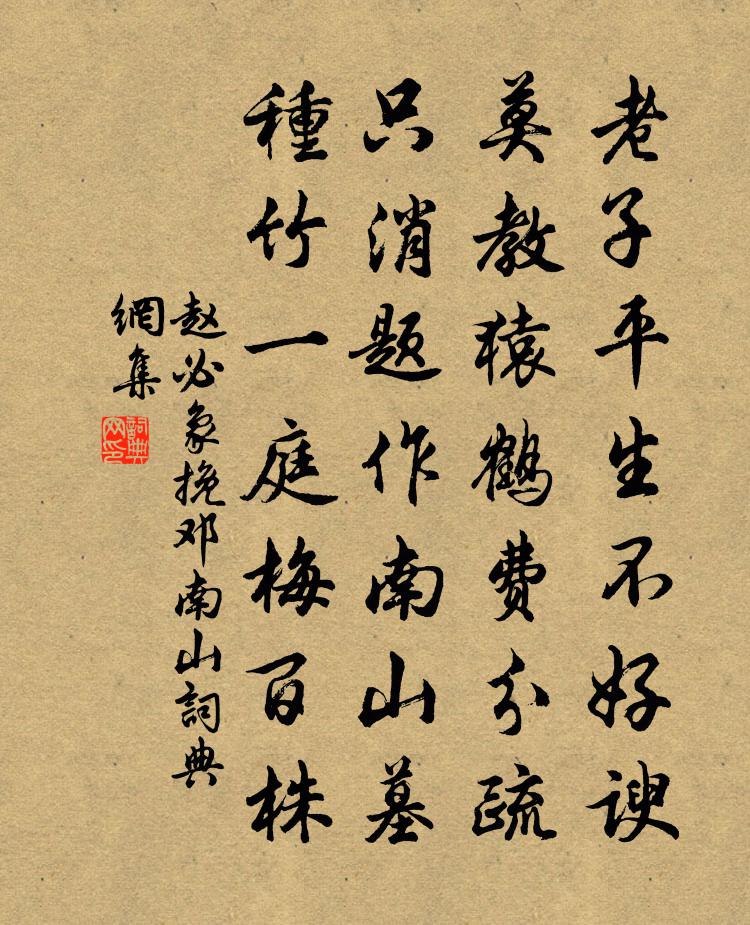 老子平生不好諛
莫教猿鶴費分疏
只消題作南山墓
種竹一庭梅百株
赵必象挽邓南山詞典
網集
詞典网印